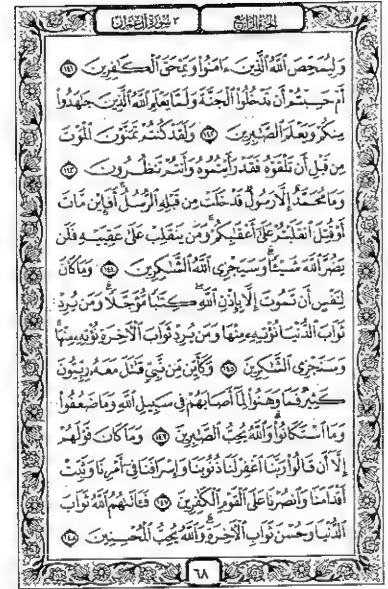 الجزء الرابع ٣ سورة آل عمران
وَلِيُمَحِّصَ ٱللَّهُ ٱلَّذِينَ ءَامَنُوا۟ وَيَمْحَقَ ٱلْكَٰفِرِينَ ١٤١
أَمْ حَسِبْتُمْ أَن تَدْخُلُوا۟ ٱلْجَنَّةَ وَلَمَّا يَعْلَمِ ٱللَّهُ ٱلَّذِينَ جَٰهَدُوا۟
مِنكُمْ وَيَعْلَمَ ٱلصَّٰبِرِينَ ١٤٢ وَلَقَدْ كُنتُمْ تَمَنَّوْنَ ٱلْمَوْتَ
مِن قَبْلِ أَن تَلْقَوْهُ فَقَدْ رَأَيْتُمُوهُ وَأَنتُمْ تَنظُرُونَ ١٤٣
وَمَا مُحَمَّدٌ إِلَّا رَسُولٌ قَدْ خَلَتْ مِن قَبْلِهِ ٱلرُّسُلُ ۚ أَفَإِي۟ن مَّاتَ
أَوْ قُتِلَ ٱنقَلَبْتُمْ عَلَىٰٓ أَعْقَٰبِكُمْ ۚ وَمَن يَنقَلِبْ عَلَىٰ عَقِبَيْهِ فَلَن
يَضُرَّ ٱللَّهَ شَيْـًٔا ۗ وَسَيَجْزِى ٱللَّهُ ٱلشَّٰكِرِينَ ١٤٤ وَمَا كَانَ
لِنَفْسٍ أَن تَمُوتَ إِلَّا بِإِذْنِ ٱللَّهِ كِتَٰبًا مُّؤَجَّلًا ۗ وَمَن يُرِدْ
ثَوَابَ ٱلدُّنْيَا نُؤْتِهِۦ مِنْهَا وَمَن يُرِدْ ثَوَابَ ٱلْءَاخِرَةِ نُؤْتِهِۦ مِنْهَا ۚ
وَسَنَجْزِى ٱلشَّٰكِرِينَ ١٤٥ وَكَأَيِّن مِّن نَّبِىٍّ قَٰتَلَ مَعَهُۥ رِبِّيُّونَ
كَثِيرٌ فَمَا وَهَنُوا۟ لِمَآ أَصَابَهُمْ فِى سَبِيلِ ٱللَّهِ وَمَا ضَعُفُوا۟
وَمَا ٱسْتَكَانُوا۟ ۗ وَٱللَّهُ يُحِبُّ ٱلصَّٰبِرِينَ ١٤٦ وَمَا كَانَ قَوْلَهُمْ
إِلَّآ أَن قَالُوا۟ رَبَّنَا ٱغْفِرْ لَنَا ذُنُوبَنَا وَإِسْرَافَنَا فِىٓ أَمْرِنَا وَثَبِّتْ
أَقْدَامَنَا وَٱنصُرْنَا عَلَى ٱلْقَوْمِ ٱلْكَٰفِرِينَ ١٤٧ فَـَٔاتَىٰهُمُ ٱللَّهُ ثَوَابَ
ٱلدُّنْيَا وَحُسْنَ ثَوَابِ ٱلْءَاخِرَةِ ۗ وَٱللَّهُ يُحِبُّ ٱلْمُحْسِنِينَ ١٤٨
٦٨